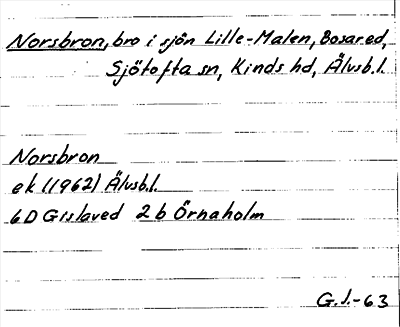 Norsbron, bro i sjön Lille-Malen, Bosared,
Sjötofta sn, Kinds hd, Älvsb.l.
Norsbron
ek (1962) Älvsb.l.
6D Gislaved 2b Örnaholm
G.J.-63